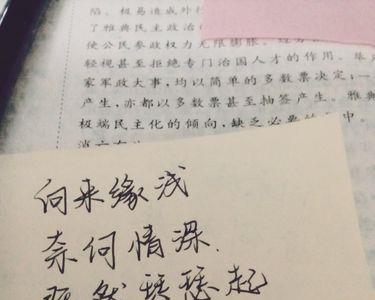 陷。极易造成外
了雅典民主政治
使公民参政权力无限膨胀。
轻视甚至拒绝专门治国人才的作用。
家军政大事，均以简单的多数票决定；一
产生，亦都以多数票甚至抽签产生。雅典
极端民主化的倾向，缺乏必要的 中
向来缘浅
奈何情深.
然 瑟起